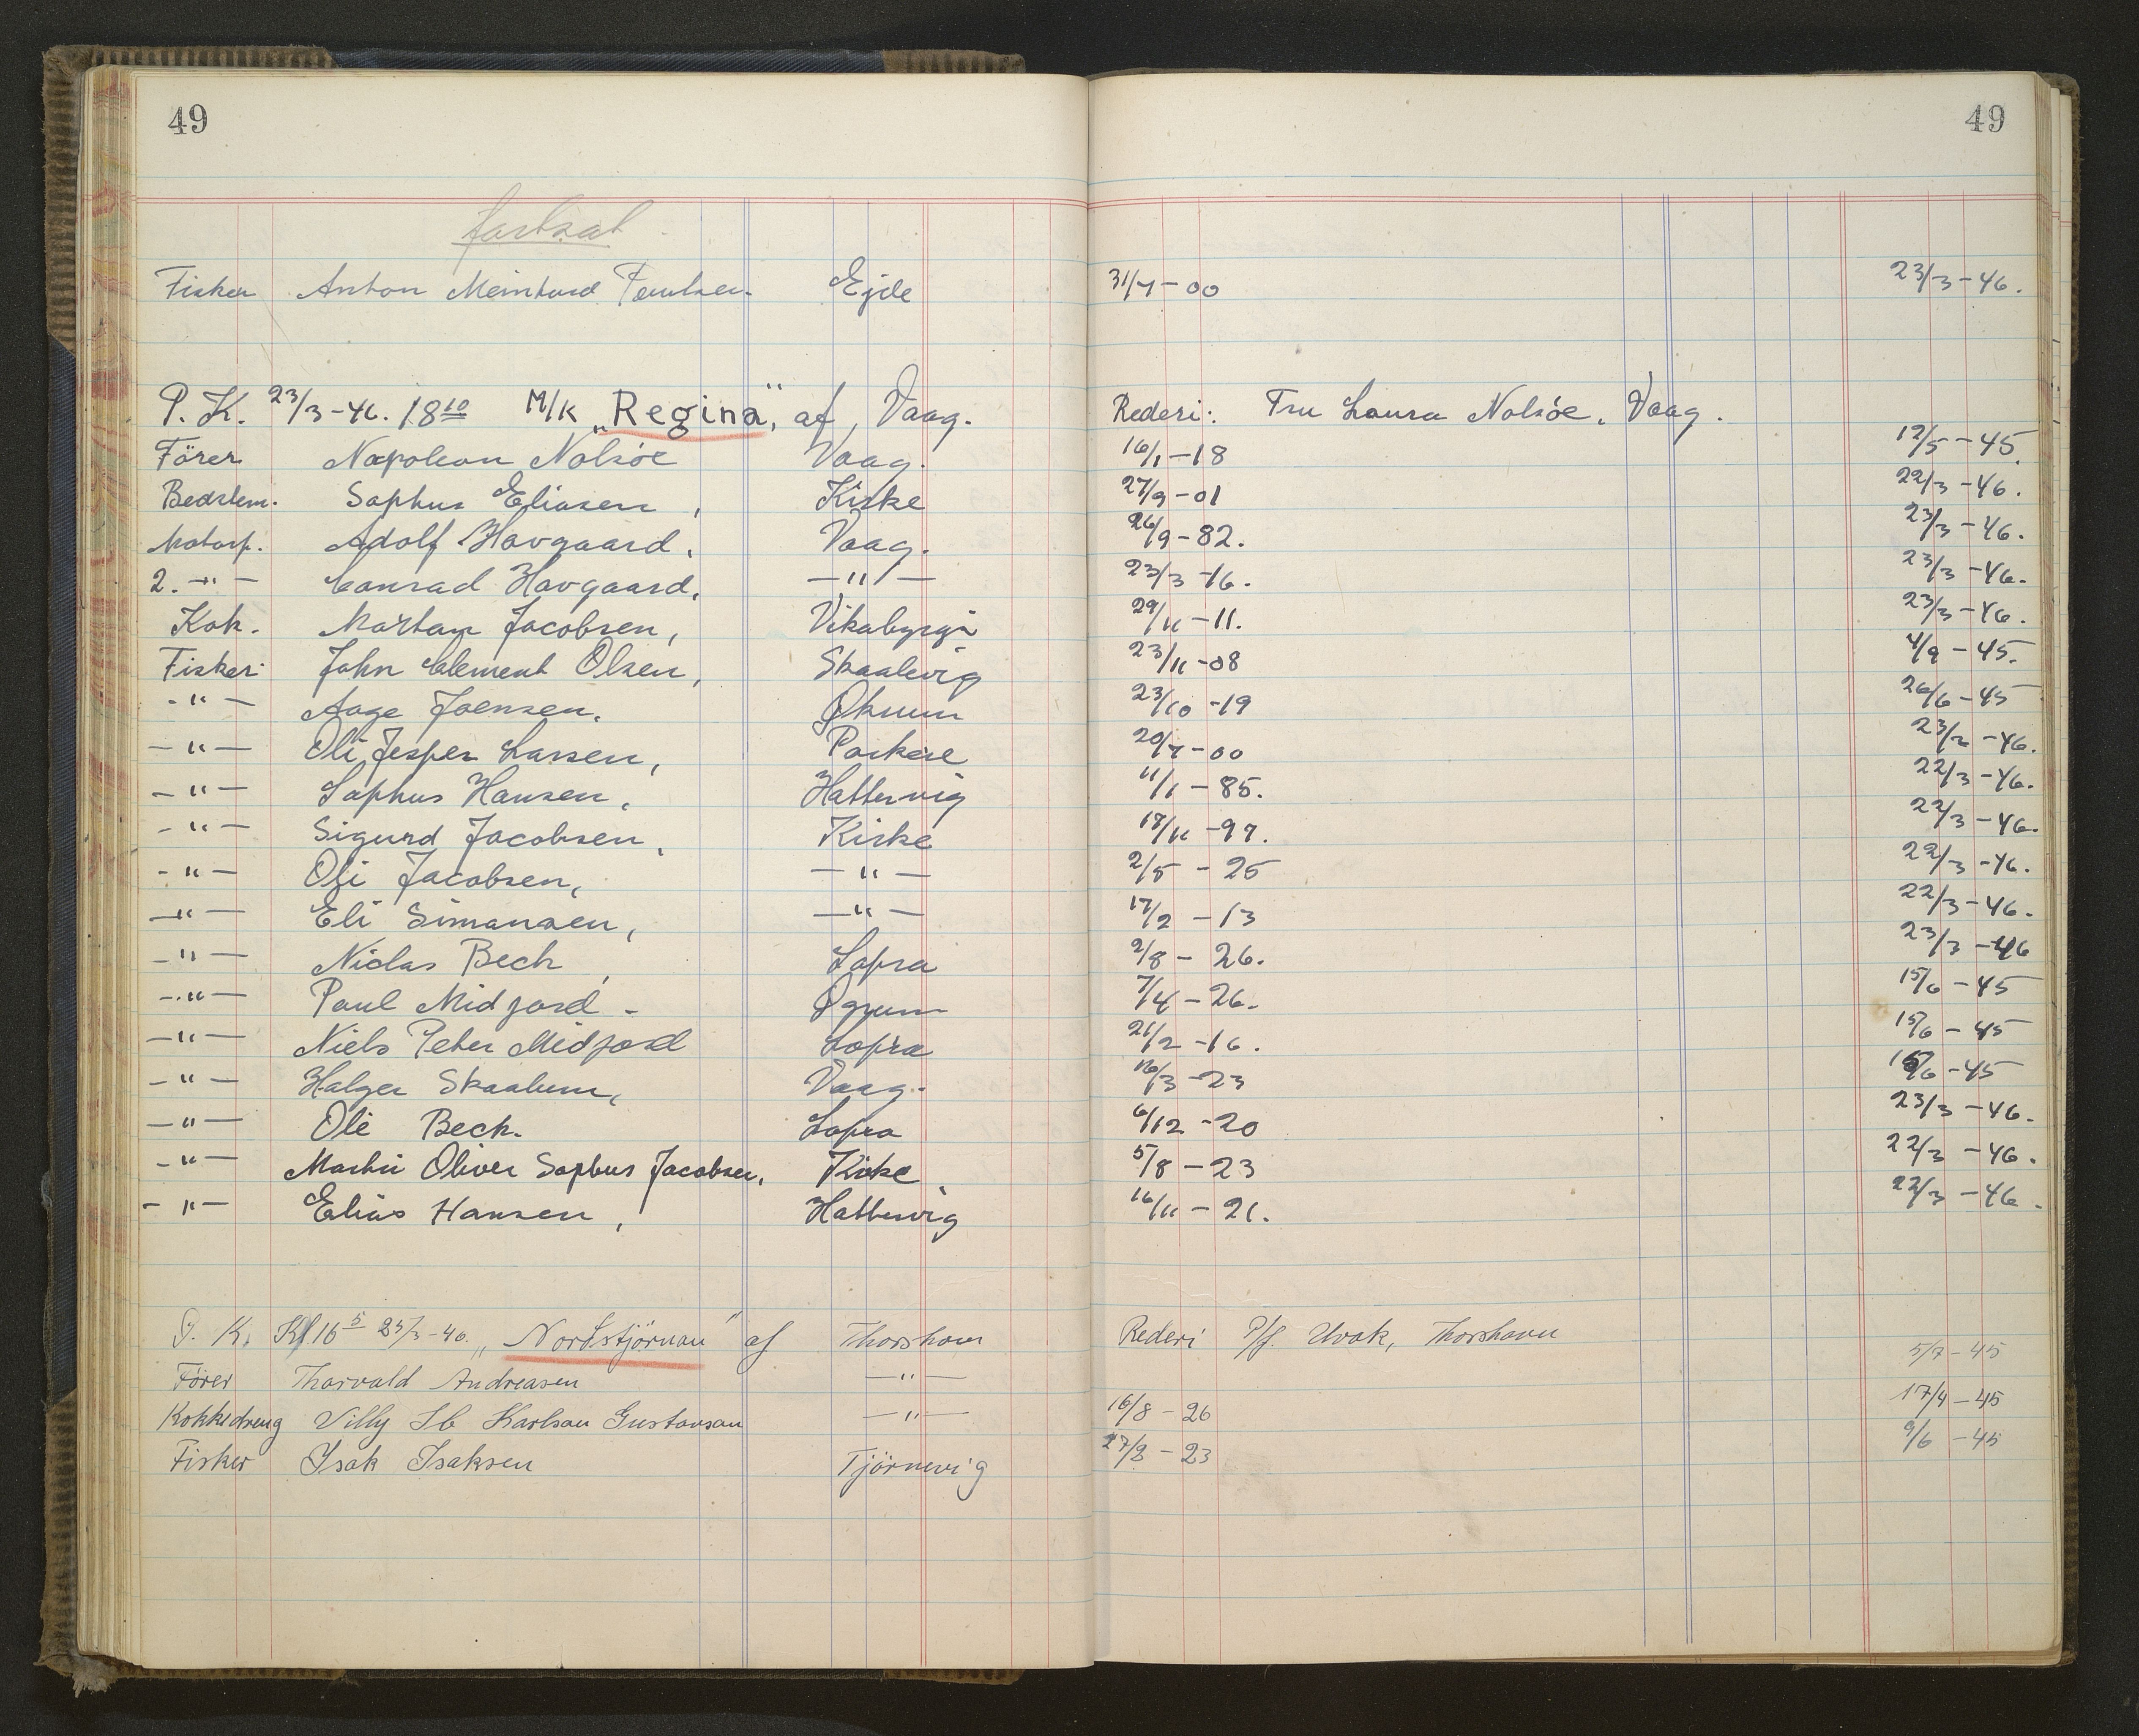 49 49
fortsat
Fisker Anton Meinhard Poulsen. Ejde 31/7-00 23/3-46.
P. K. 23/3-46. 18 10 M/K "Regina", af, Vaag. Rederi: Fru Laura Nolsöe, Vaag.
Förer Napoleon Nolsöe Vaag. 16/1-18 17/5-45.
Bedstem. Sophus Eliasen, Kirke 27/9-01 22/3-46.
Motorp. Adolf Hovgaard, Vaag. 26/9-82. 23/3-46.
2. -"- Conrad Hovgaard, -"- 23/3-16. 23/3-46.
Kok. Mortan Jacobsen, Vikabyrgi 29/11-11. 23/3-46.
Fisker John Clement Olsen, Skaalevig 23/11-08 4/9-45.
-"- Aage Joensen, 23/10-19 26/6-45
-"- Oli Jesper Larsen, Porkere 20/7-00 23/2-46.
-"- Sophus Hansen, Hattervig 11/1-85. 22/3-46.
-"- Sigurd Jacobsen, Kirke 18/11-97. 22/3-46.
-"- Oli Jacobsen, -"- 2/5-25 22/3-46.
-"- Eli Simonsen, -"- 17/2-13 22/3-46.
-"- Niclas Bech, Lopra 2/8-26. 23/3-46
-"- Poul Midjord - 7/4-26. 15/6-45
-"- Niels Peter Midjord Lopra 21/2-16. 15/6-45
-"- Holger Skaalum, Vaag. 16/3-23 15/6-45
-"- Ole Bech. Lopra 6/12-20 23/3-46.
-"- Martin Oliver Sophus Jacobsen, Kirke, 5/8-23 22/3-46.
-"- Elias Hansen, Hattervig 16/11-21. 22/3-46.
P. K. Kl 16 5 25/3-46. "Nordstjörnan" af Thorshavn Rederi P/f. Uvak, Thorshavn
Förer Thorvald Andreasen -"- 5/7-45
Kokkedreng Villy Ib Karlson Gustavson -"- 16/8-26 17/4-45
Fisker Isak Isaksen Tjörnevig 27/8-23 9/6-45